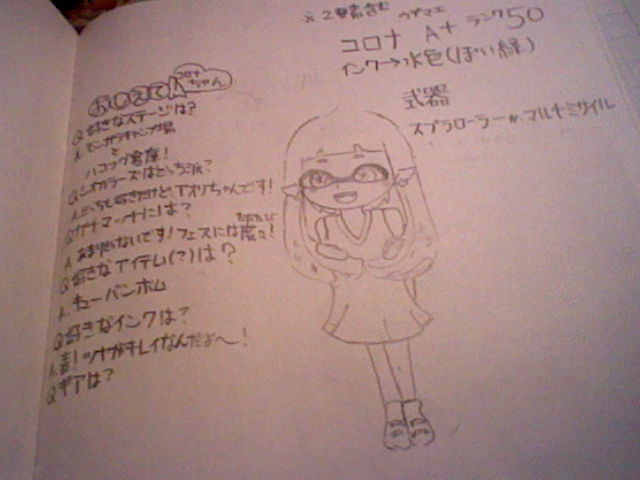 ※2要素含む
ウデマエ
コロナ A+ ランク50
インク→水色(ぽい緑)
式器
スプラローラー マルチミサイル
おしえて コロナちゃん
Q 好きなステージは?
A. モンガラキャンプ場
と
ハコフグ倉庫!
Q シオカラーズはどっち派?
A. どっちも好きだけど、アオリちゃんです!
Q ガチマッチには?
A あまり でないです!フェスには度々!
たびたび
Q 好きなアイテム(?)は?
A. キューバンボム
Q 好きなインクは?
A. 青! ツナガキレイなんだよ〜!
Q ギアは?